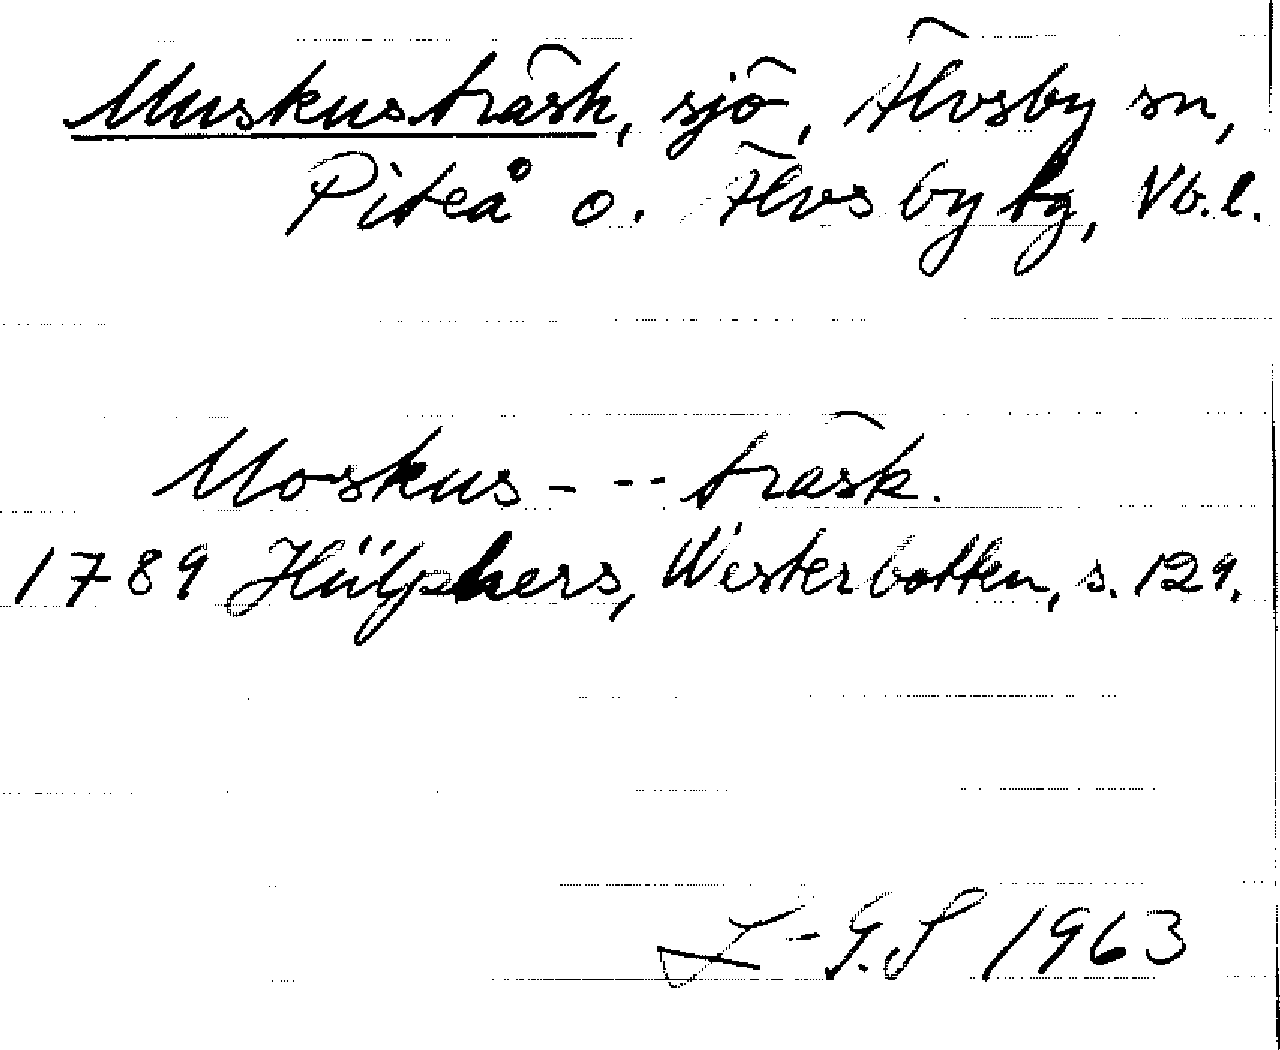 Muskusträsk, sjö, Älvsby sn,
Piteå o. Älvsby tg, Vb.l.
Moskus - -- träsk.
1789 Hülphers, Westerbotten, s. 129.
L-G.S 1963